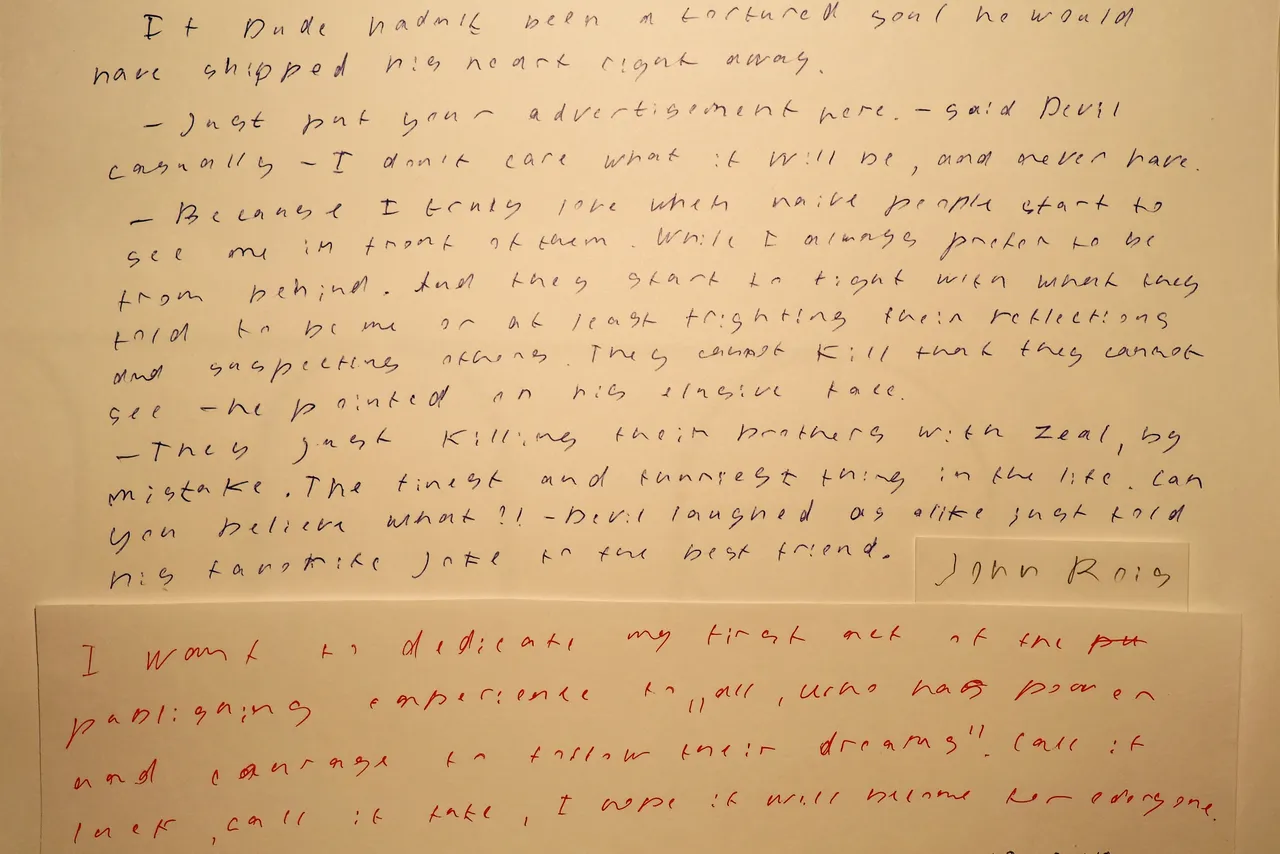 If Dude hadn't been a tortured soul he would
have shipped his heart right away.
– Just put your advertisement here. – said Devil
casually – I don't care what it will be, and never have.
– Because I truly love when naive people start to
see me in front of them. While I always prefer to be
from behind. And they start to fight with what they
told to be me or at least frighting their reflections
and suspecting others. They cannot kill that they cannot
see – he pointed on his elusive face.
– They just killing their brothers with zeal, by
mistake. The finest and funniest thing in the life. Can
you believe what?! – Devil laughed as alike just told
his favorite joke to the best friend.
John
I want to dedicate my first act of the pu
publishing experience to „all, who has power
and courage to follow their dreams". Call it
luck, call it fate, I hope it will become for everyone.